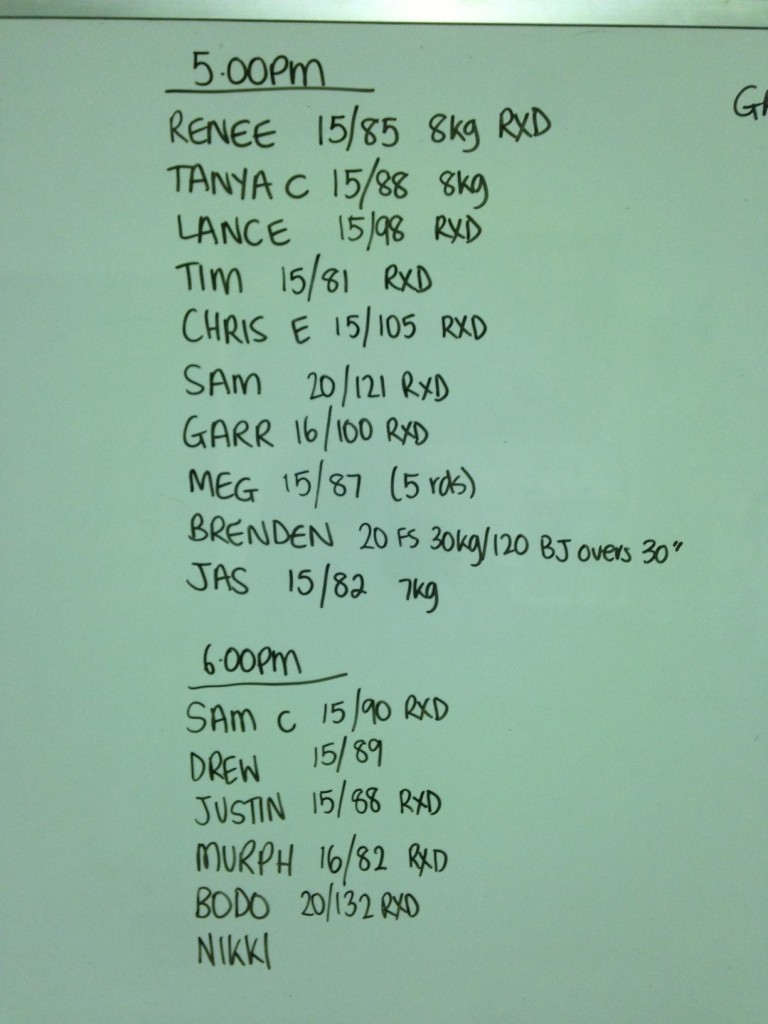 5.00pm
GA
RENEE 15/85 8kg RXD
TANYA C 15/88 8kg
LANCE 15/98 RXD
TIM 15/81 RXD
CHRIS E 15/105 RXD
SAM 20/121 RXD
GARR 16/100 RXD
MEG 15/87 (5 rds)
BRENDEN 20 FS 30kg/120 BJ overs 30"
JAS 15/82 7kg
6.00pm
SAM C 15/90 RXD
DREW 15/89
JUSTIN 15/88 RXD
MURPH 16/82 RXD
BODO 20/132 RXD
NIKKI